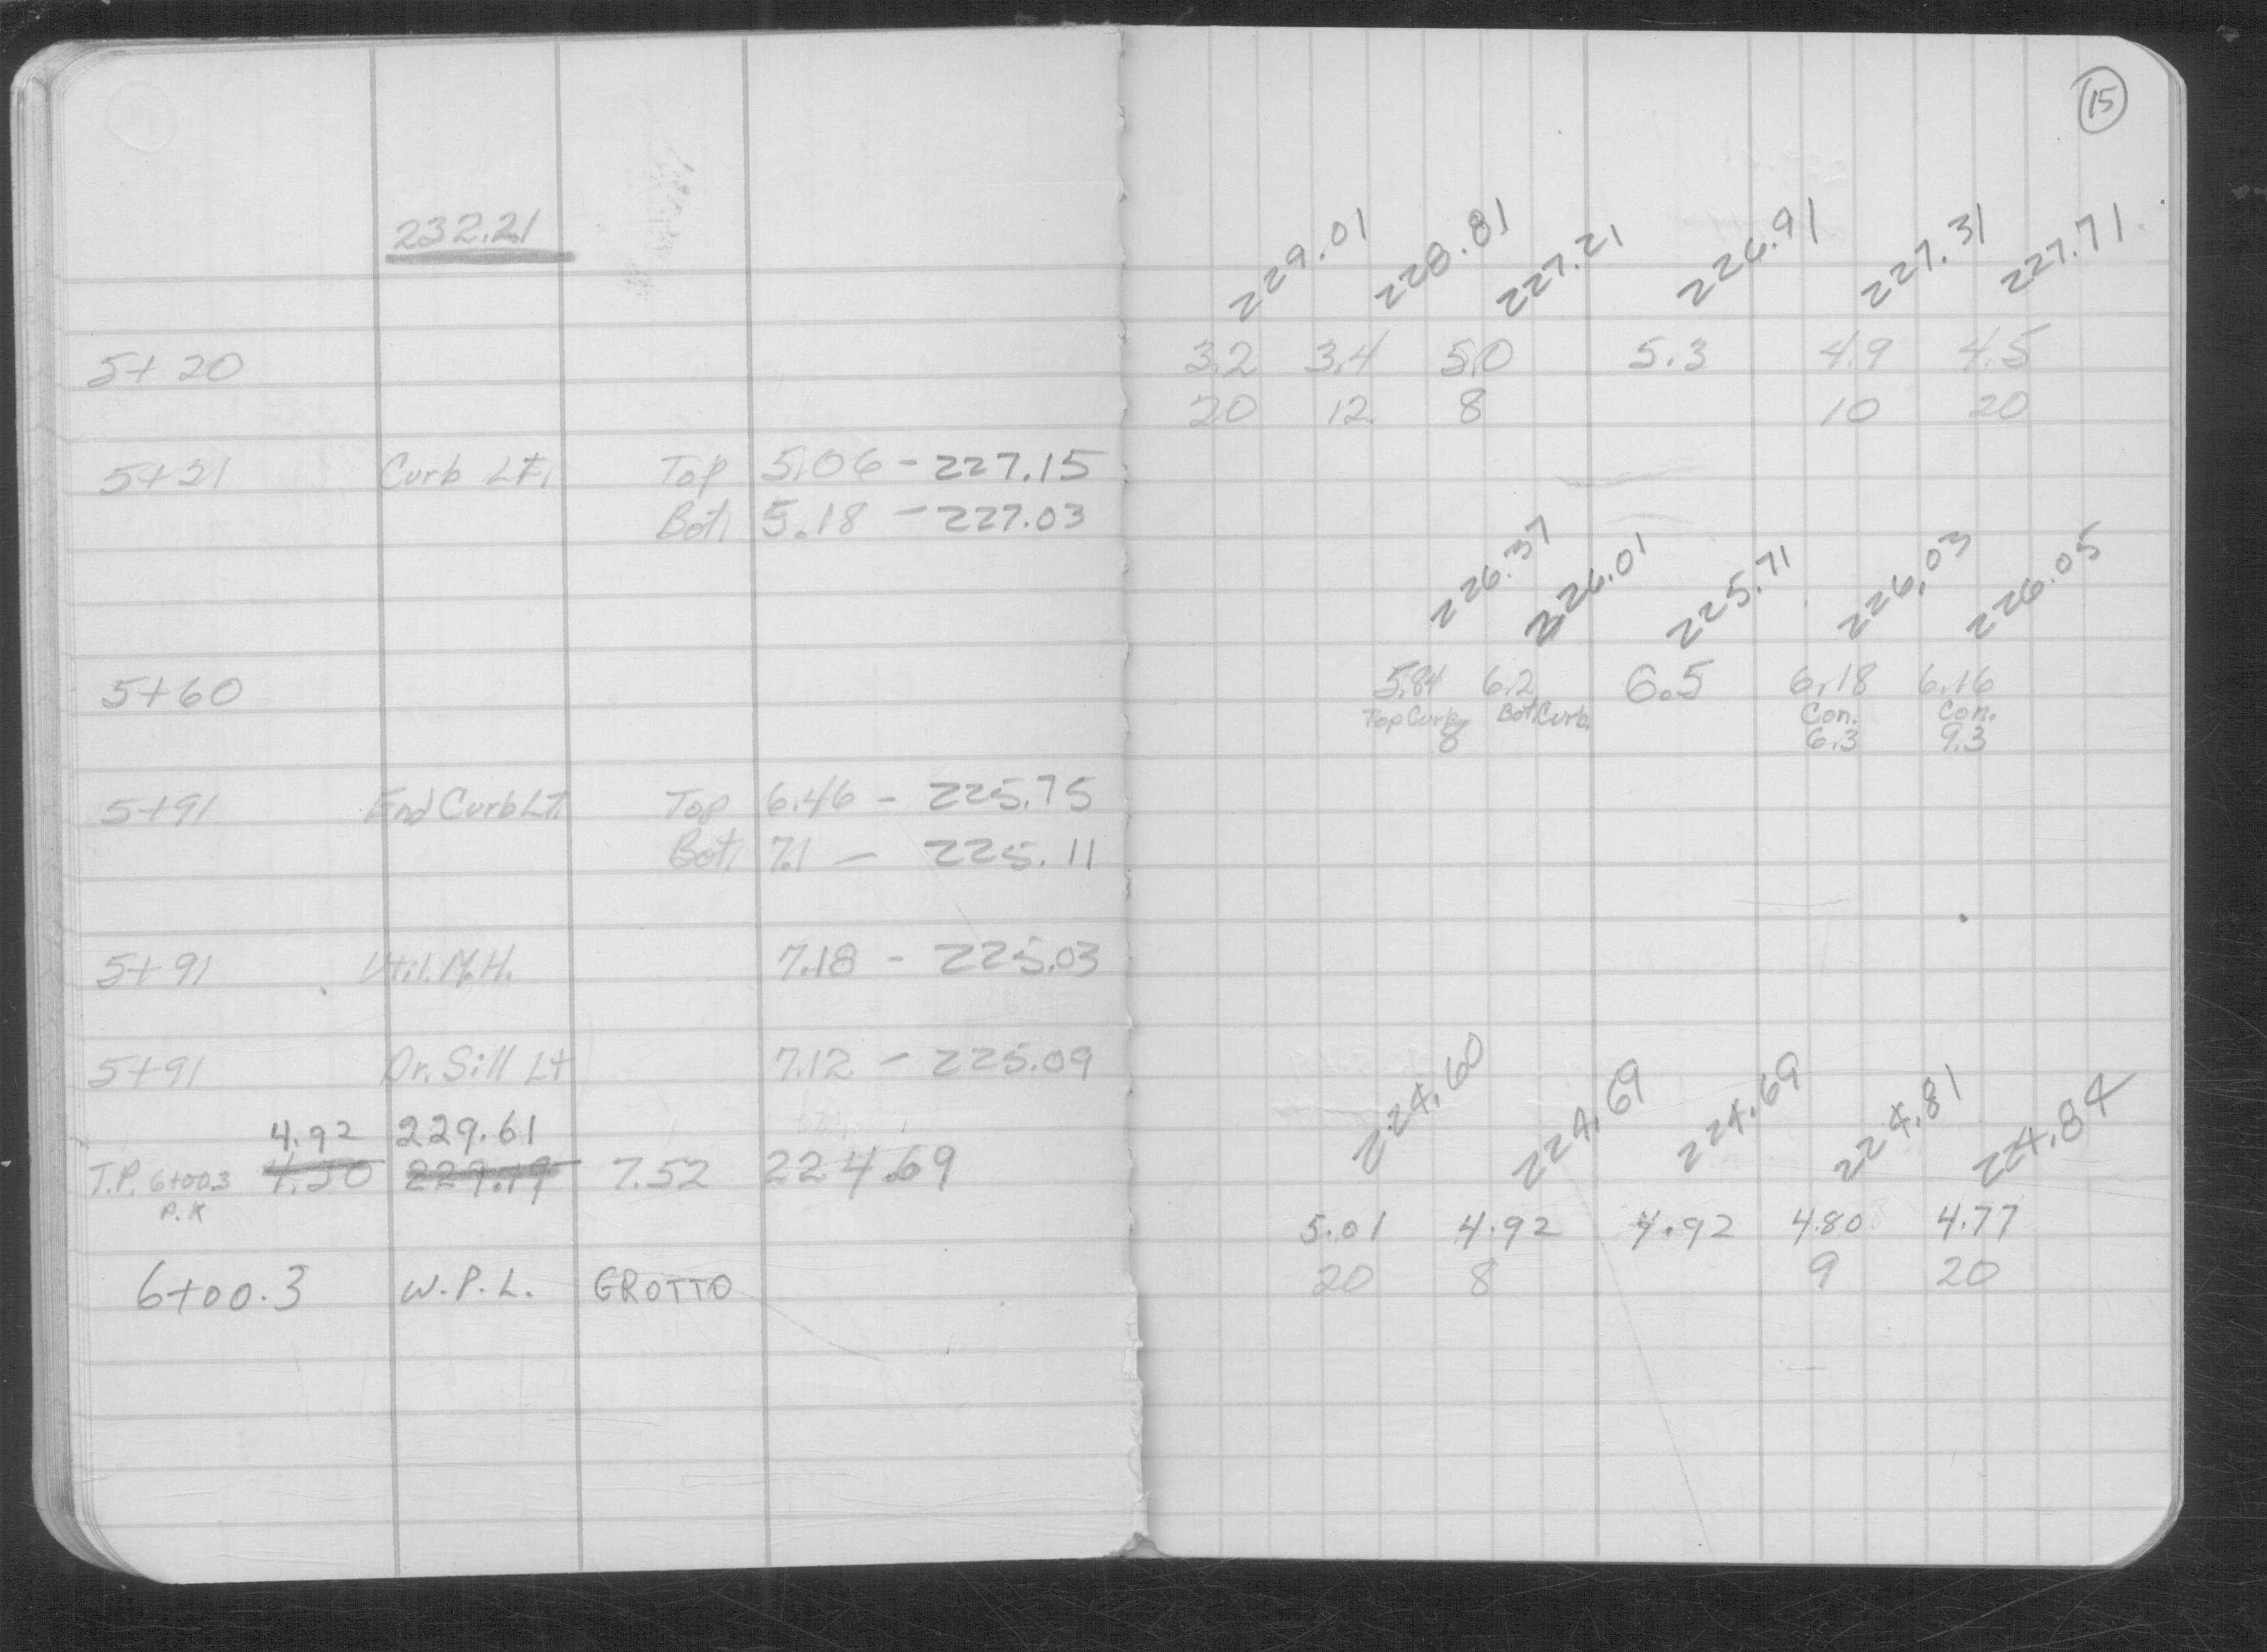 232.21
5+20
5+21 Curb Lt. Top 5.06 - 227.15
Bot. 5.18 - 227.03
5+60
5+91 End Curb Lt. Top 6.46 - 225.75
Bot. 7.1 - 225.11
5+91 Util. M.H. 7.18 - 225.03
5+91 Dr. Sill Lt 7.12 - 225.09
4.92 229.61
T.P. 6+00.3 4.50 229.19 7.52 224.69
P.K
6+00.3 W.P.L. GROTTO
15
229.01 228.81 227.21 226.91 227.31 227.71
3.2 3.4 5.0 5.3 4.9 4.5
20 12 8 10 20
226.37 226.01 225.71 226.03 226.05
5.84 6.2 6.5 6.18 6.16
Top Curb Bot. Curb. Con. Con.
8 6.3 9.3
224.60 224.69 224.69 224.81 224.84
5.01 4.92 4.92 4.80 4.77
20 8 9 20